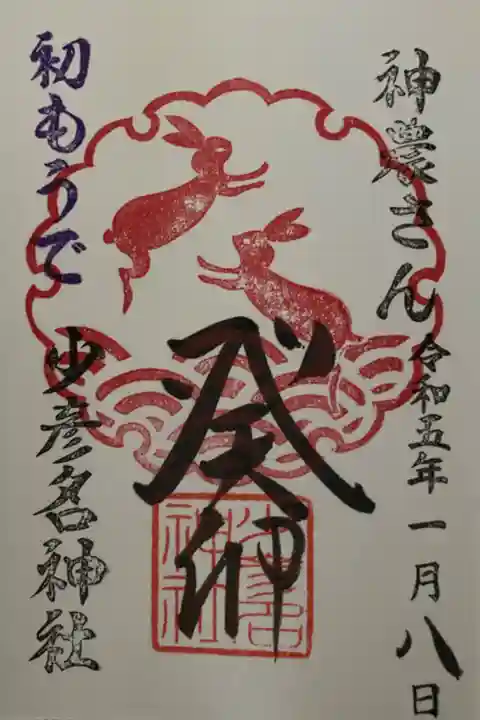 神農さん
令和五年一月八日
癸卯
少彦名
神社
初もうで
少彦名神社